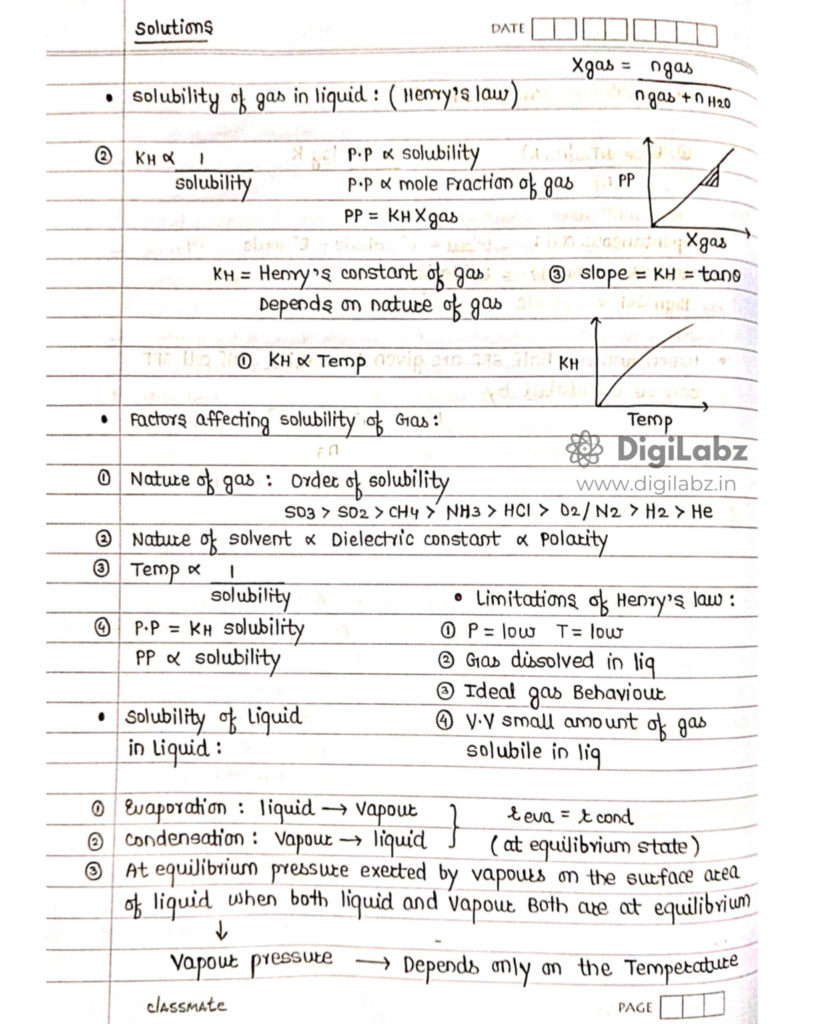 Solutions
DATE
Xgas = ngas / ngas + nH2O
• Solubility of gas in liquid : ( Henry's law )
② KH ∝ 1 / solubility
P.P ∝ solubility
P.P ∝ mole Fraction of gas
PP = KH Xgas
PP
Xgas
KH = Henry's constant of gas
Depends on nature of gas
③ slope = KH = tanθ
① KH ∝ Temp
KH
Temp
• Factors affecting solubility of Gas :
DigiLabz
www.digilabz.in
① Nature of gas : Order of solubility
SO3 > SO2 > CH4 > NH3 > HCl > O2/ N2 > H2 > He
② Nature of solvent ∝ Dielectric constant ∝ Polarity
③ Temp ∝ 1 / solubility
④ P.P = KH solubility
PP ∝ solubility
• Limitations of Henry's law :
① P = low T = low
② Gas dissolved in liq
③ Ideal gas Behaviour
④ V.V small amount of gas
solubile in liq
• Solubility of Liquid
in Liquid :
① Evaporation : liquid → Vapour
② condensation : Vapour → liquid
r eva = r cond
( at equilibrium state )
③ At equilibrium pressure exerted by vapours on the surface area
of liquid when both liquid and Vapour Both are at equilibrium
↓
Vapour pressure → Depends only on the Temperature
classmate
PAGE